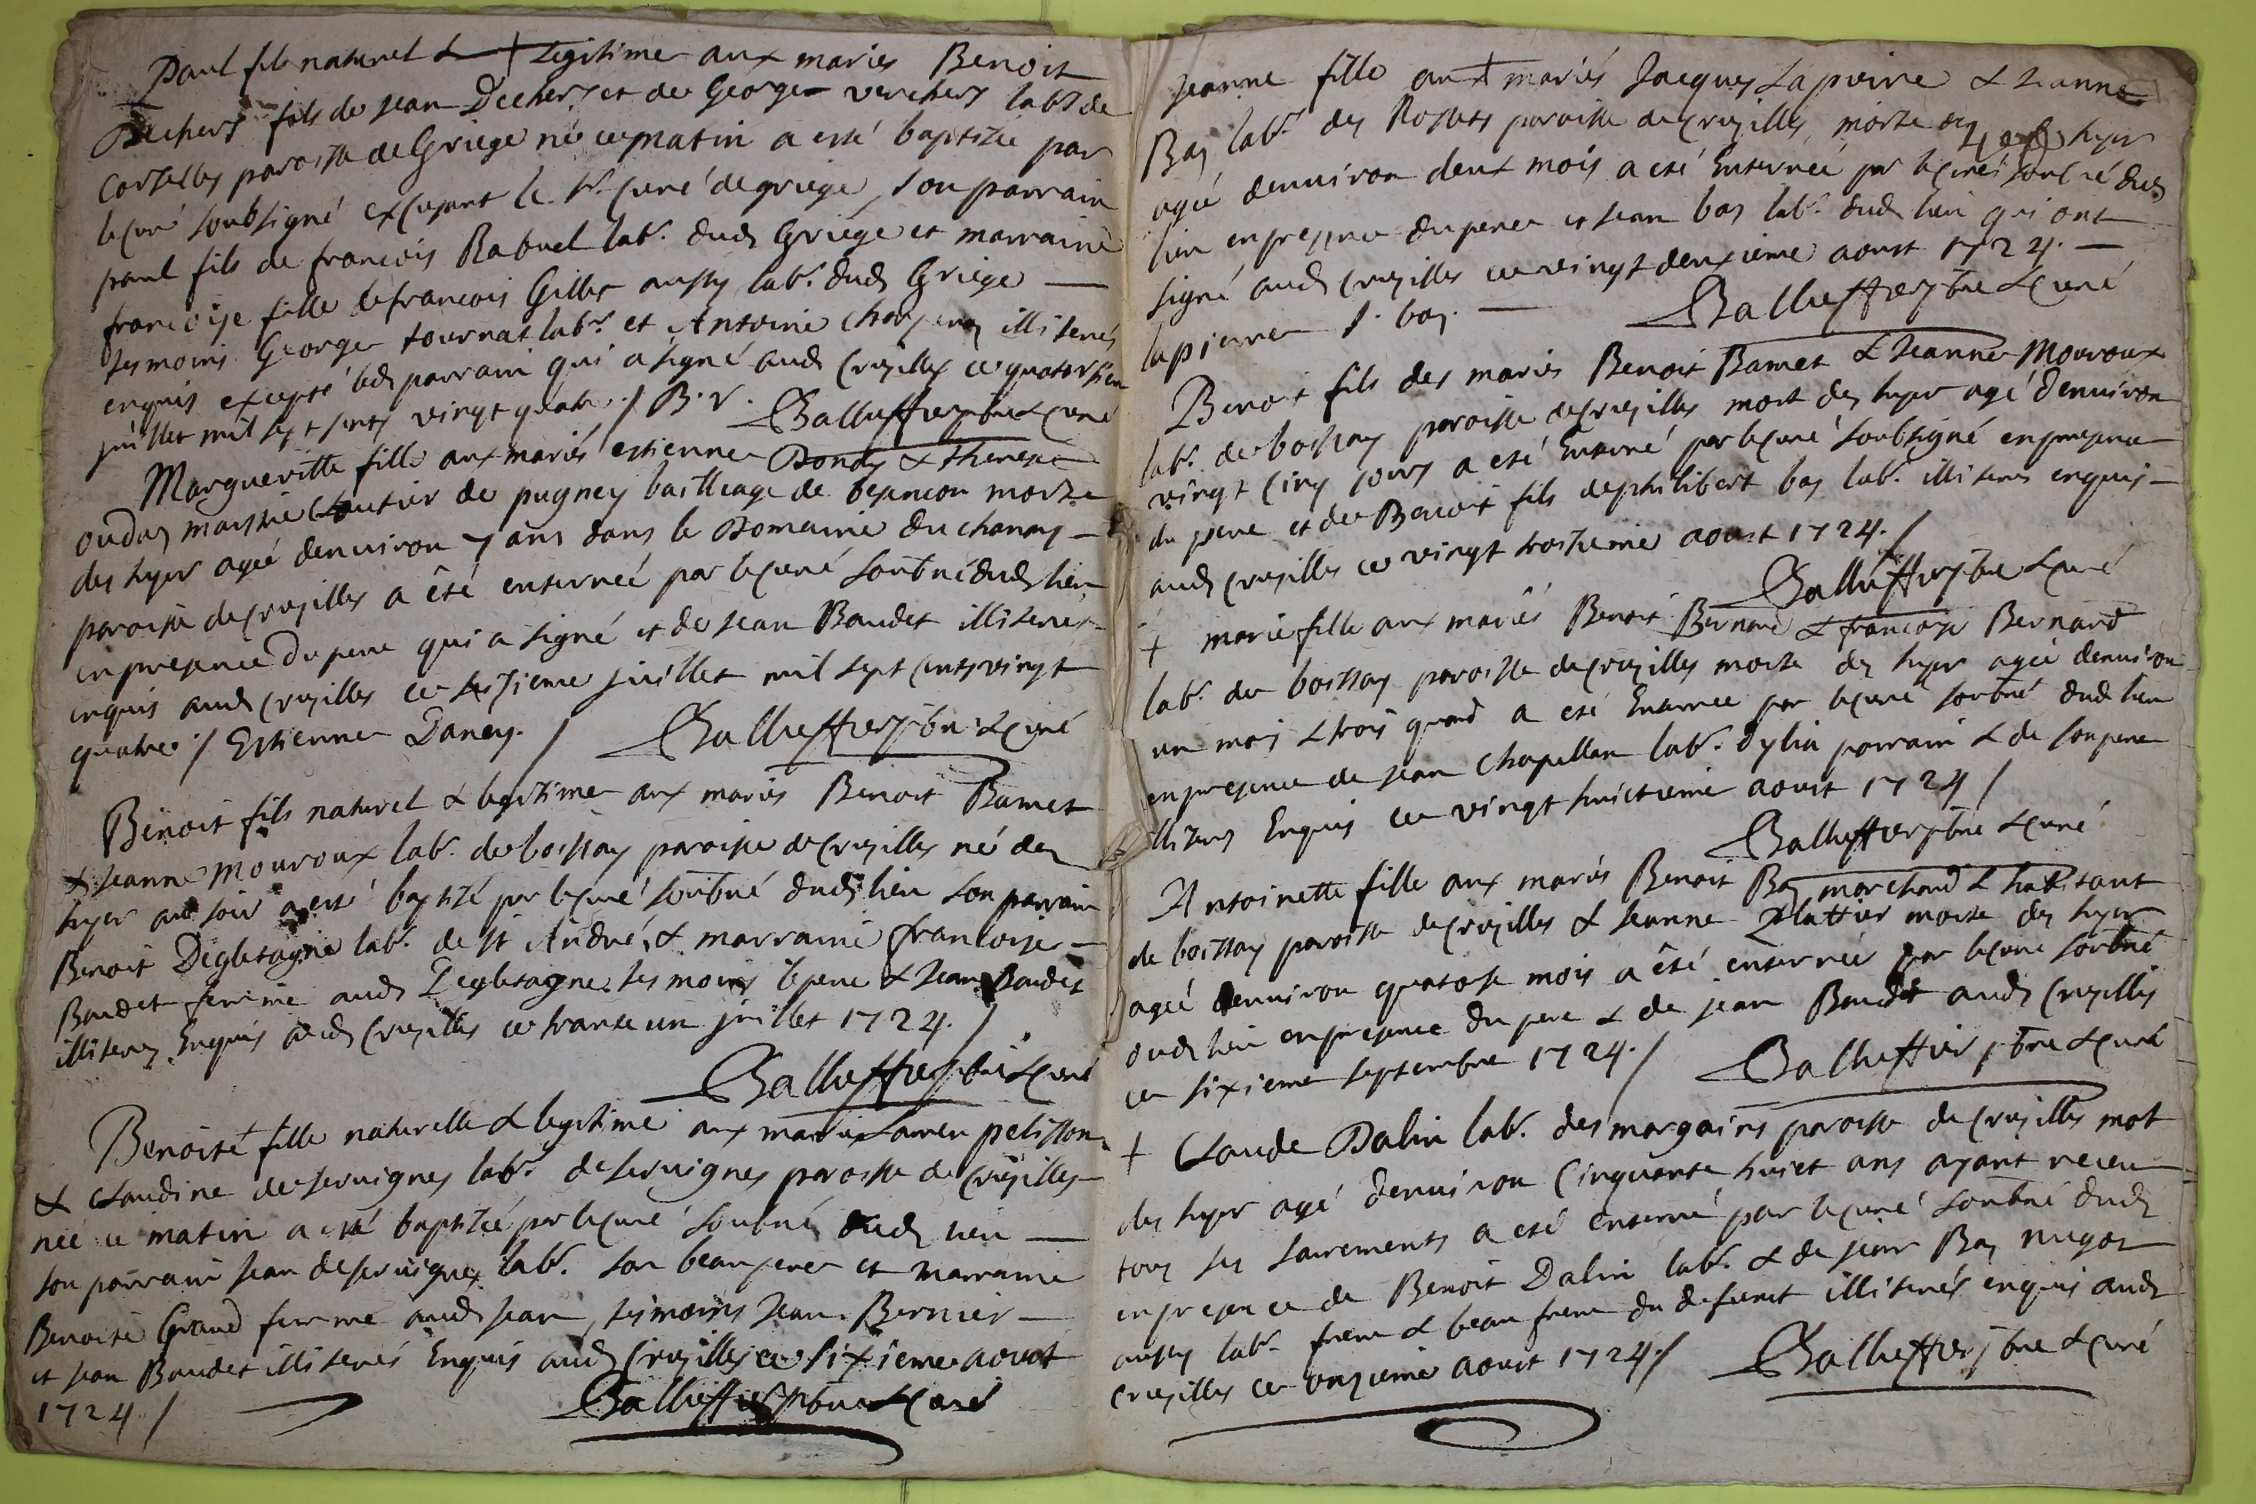 Paul fils naturel & Legitime aux mariés Benoit
Dechers fils de Jean Dechers et de George verchers labr de
Corselles paroisse de Griege né ce matin a esté baptizée par
le curé soubsigné excusant le Sr Curé de griege, son parrain
paul fils de françois Rabuel labr. dud. Griége et marraine
françoise fille de françois Gilles aussy labr. dud. Griége
tesmoins George tournat labr. et Antoine illiterés
enquis excepté led. parrain qui a signé aud. Crusilles ce
juillet mil sept cents vingt quatre / B. r. Galluffier pbre & curé
Margueritte fille aux mariés estienne & therese
maistre de pugney bailleage de besancon morte
des hyer agée denviron 7 ans dans le Domaine du
paroisse de Crusilles a été enterreé par le curé soubné dud. lieu
en presence du pere qui a signé et de Jean Baudet illiterés
enquis aud. Crusilles ce juillet mil sept cents vingt
quatre / Estienne Daney. / Galluffier pbre & curé
Benoit fils naturel & legitime aux mariés Benoit Bamet
& Jeanne Mouroux labr. de boissay paroisse de Crusilles né des
hyer au soir a esté baptizé par le curé soubné dud. lieu son parrain
Benoit Degletagne labr. de St André, & marraine francoise
Baudet femme aud. Degletagne tesmoins le pere & Jean Baudet
illiteres Enquis aud. Crusilles ce trante un juillet 1724. /
Galluffier pbre & curé
Benoite fille naturelle & legitime aux mariés pelisson
& Claudine de servignes labr. de servignes paroisse de Crusilles
née ce matin a esté baptizée par le curé soubné dud. lieu
son parrain Jean de servignes labr. son beaupere et marraine
Benoite Grand femme aud. Jean, tesmoins Jean Bernier
et Jean Baudet illiterés Enquis aud. Crusilles ce sixieme aoust
1724. / Galluffier pbre & curé
Jeanne fille aux mariés Jacques Lapierre & Jeanne
Bas labr. des paroisse de Crusilles, morte hyer
agée denviron deux mois a esté Enterrée par le curé soubné dud.
lieu en presence du pere et Jean bas labr. dud. lieu qui ont
signé aud. Crusilles ce vingt deuxieme aoust 1724.
lapierre J. bas. Galluffier pbre & curé
Benoit fils des mariés Benoit Bamet & Jeanne Mouroux
labr. de boissay paroisse de Crusilles mort des hyer agé denviron
vingt cinq jours a esté Enterré par le curé soubsigné en presence
du pere et de Benoit fils de philibert bas labr. illiteres enquis
aud. Crusilles ce vingt troisieme aoust 1724. /
Galluffier pbre & curé
+ marie fille aux mariés Benoit Bernard & francoise Bernard
labr. de boissay paroisse de Crusilles morte des hyer agée denviron
un mois & trois quard a esté Enterrée par le curé soubné dud. lieu
en presence de Jean Chapellan labr. parrain & de son pere
illiterés Enquis ce vingt huictieme aoust 1724 /
Galluffier pbre & curé
Antoinette fille aux mariés Benoit Bas marchand & habitant
de boissay paroisse de Crusilles & Jeanne Plattier morte des hyer
agée denviron quatorse mois a été enterrée par le curé soubné
dud. lieu en presence du pere & de jean Baudet aud. Crusilles
ce sixieme septembre 1724. / Galluffier pbre & curé
+ Claude Dalin labr. des margains paroisse de Crusilles mot
des hyer agé denviron Cinquante huict ans ayant receu
tous ses sacrements a esté enterré par le curé soubné dud.
en presence de Benoit Dalin labr. & de Jean Bas
aussy labr. frere & beau frere du defunct illiterés enquis aud.
Crusilles ce onzieme aoust 1724. / Galluffier pbre & curé